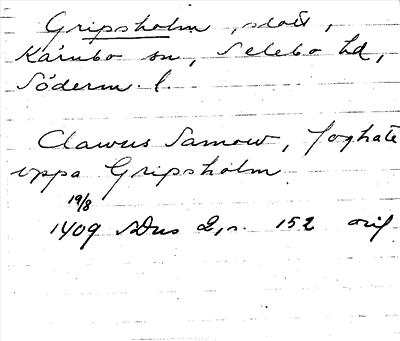 Gripsholm, slott,
Kärnbo sn, Selebo hd,
Söderm. l.
Clawus Samow, foghate
uppa Gripsholm
19/8
1409 SDns 2, s. 152 orig